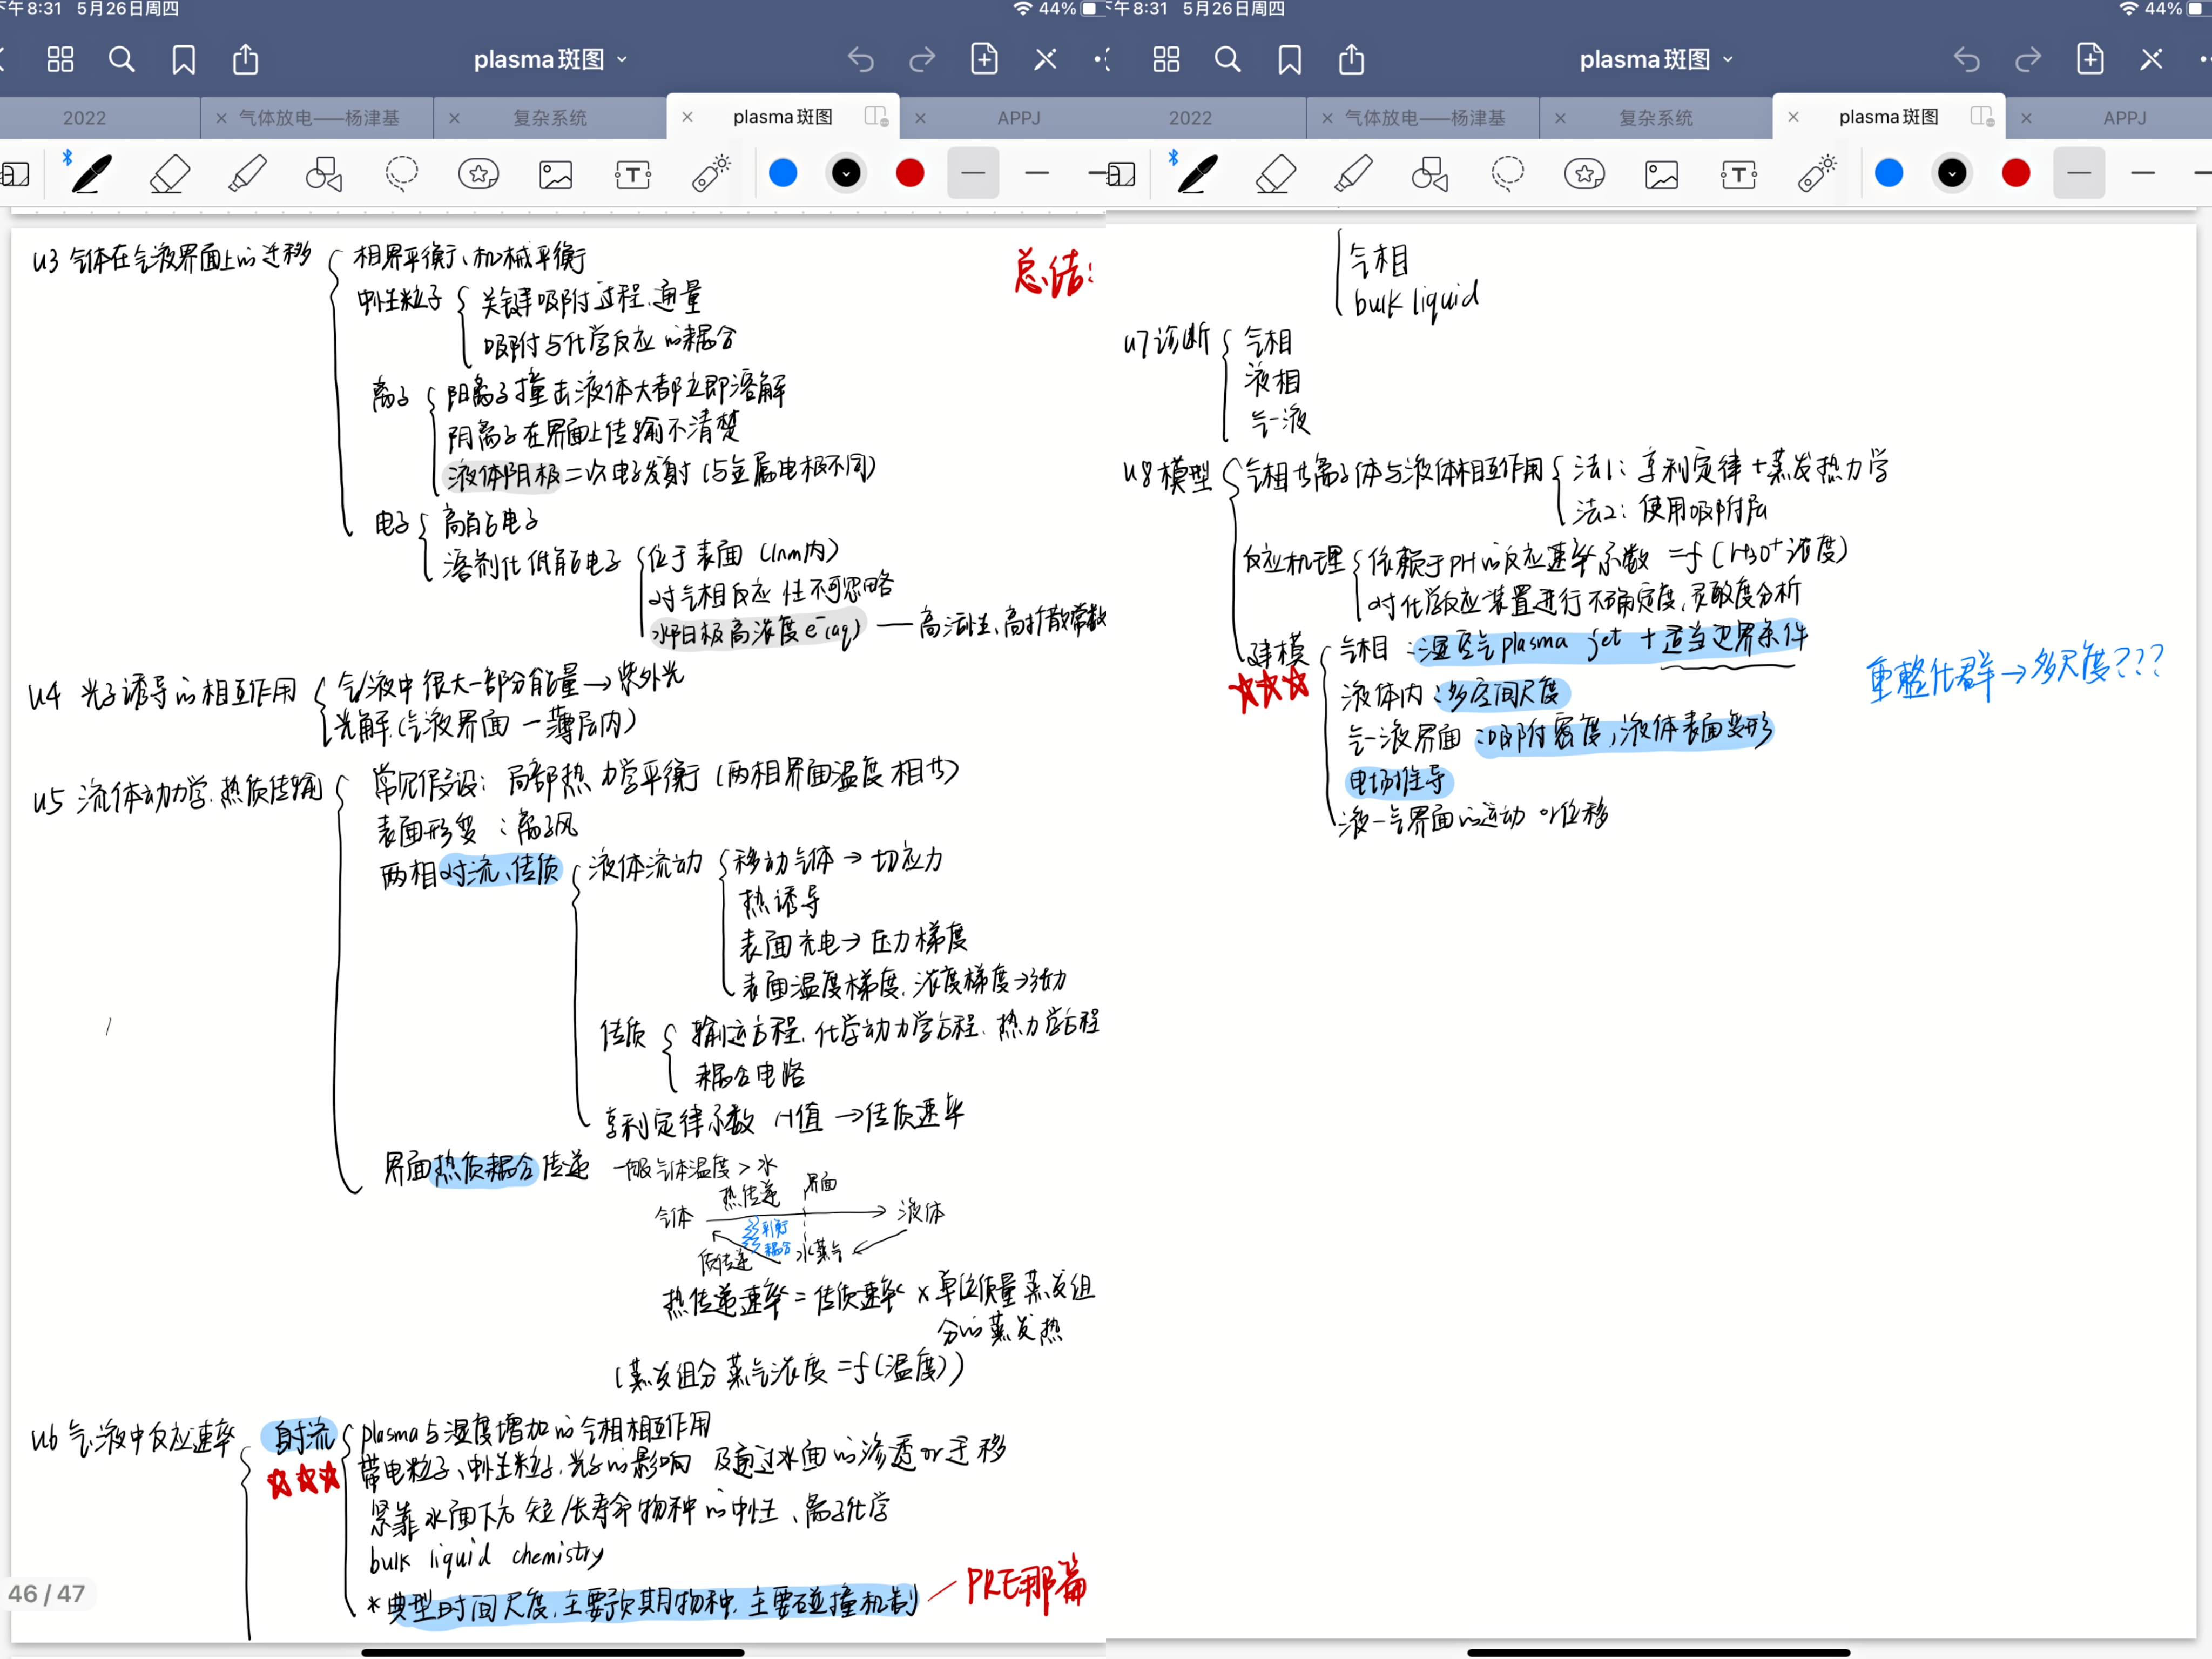 下午8:31 5月26日周四
44%
plasma斑图
2022
气体放电——杨津基
复杂系统
plasma斑图
APPJ
总结:
U3 气体在气液界面上的迁移
相界平衡、机械平衡
中性粒子
关键吸附过程.通量
吸附与化学反应的耦合
离子
阳离子撞击液体大都立即溶解
阴离子在界面上传输不清楚
液体阴极二次电子发射(与金属电极不同)
电子
高能电子
溶剂化低能电子
位于表面(1nm内)
对气相反应性不可忽略
水阳极高浓度e⁻(aq) — 高活性、高扩散常数
U4 光子诱导的相互作用
气/液中很大一部分能量→紫外光
光解(气液界面一薄层内)
U5 流体动力学.热质传输
常见假设: 局部热力学平衡(两相界面温度相等)
表面形变:离子风
两相对流、传质
液体流动
移动气体→切应力
热诱导
表面充电→压力梯度
表面温度梯度.浓度梯度→张力
传质
输运方程.化学动力学方程.热力学方程
耦合电路
亨利定律系数 H值→传质速率
界面热质耦合传递
一般气体温度>水
热传递 界面
气体 液体
平衡
耦合
质传递 水蒸气
热传递速率=传质速率×单位质量蒸发组
分的蒸发热
(蒸发组分蒸气浓度=f(温度))
U6 气液中反应速率
射流
plasma与湿度增加的气相相互作用
带电粒子、中性粒子.光子的影响 及通过水面的渗透or迁移
紧靠水面下方 短/长寿命物种的中性、离子化学
bulk liquid chemistry
*典型时间尺度.主要预期物种.主要碰撞机制 — PRE那篇
46 / 47
下午8:31 5月26日周四
44%
plasma斑图
2022
气体放电——杨津基
复杂系统
plasma斑图
APPJ
气相
bulk liquid
U7 诊断
气相
液相
气-液
U8 模型
气相共离子体与液体相互作用
法1: 亨利定律+蒸发热力学
法2: 使用吸附层
反应机理
依赖于PH的反应速率系数=f(H3O⁺浓度)
对化学反应装置进行不确定度.灵敏度分析
建模
气相:湿空气plasma jet+适当边界条件
液体内:多空间尺度
气-液界面:吸附密度,液体表面变形
电场推导
液-气界面的运动or位移
重整化群→多尺度???